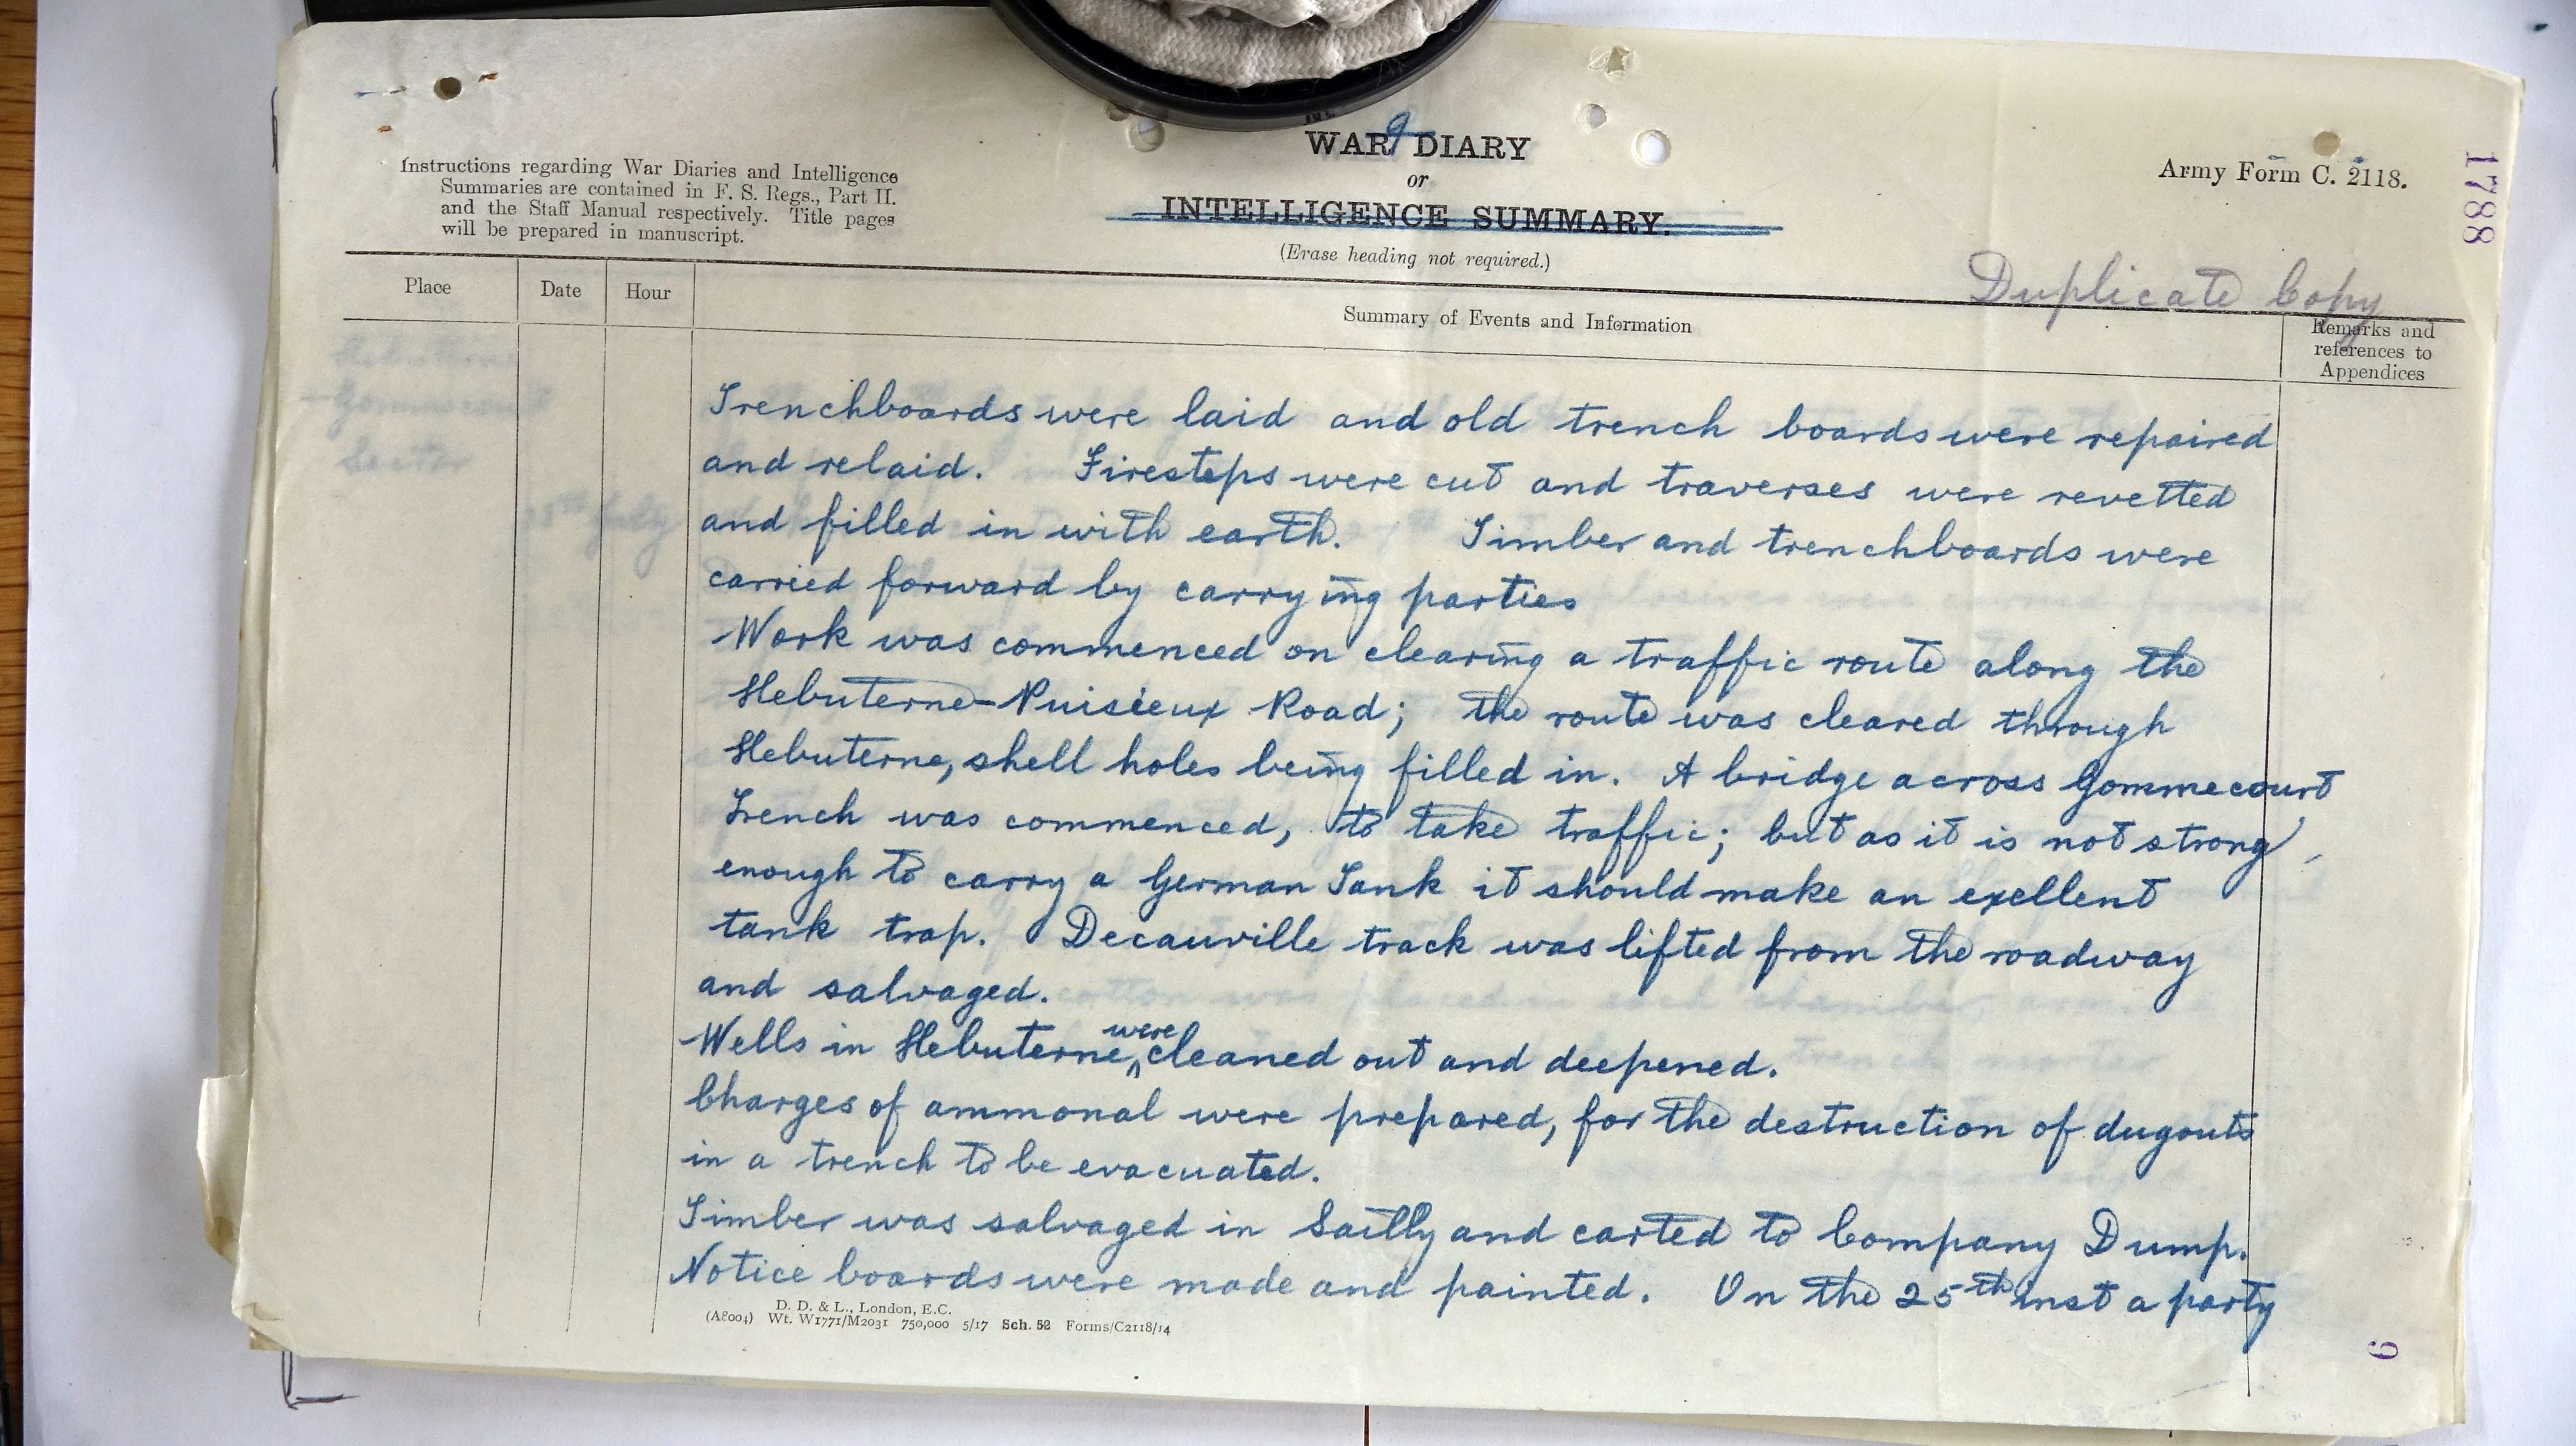 9
WAR DIARY
or
INTELLIGENCE SUMMARY.
(Erase heading not required.)
Instructions regarding War Diaries and Intelligence
Summaries are contained in F. S. Regs., Part II.
and the Staff Manual respectively. Title pages
will be prepared in manuscript.
Army Form C. 2118.
1788
Duplicate Copy
Place
Date
Hour
Summary of Events and Information
Remarks and
references to
Appendices
Trenchboards were laid and old trench boards were repaired
and relaid. Firesteps were cut and traverses were revetted
and filled in with earth. Timber and trenchboards were
carried forward by carrying parties
Work was commenced on clearing a traffic route along the
Hebuterne-Puisieux Road; the route was cleared through
Hebuterne, shell holes being filled in. A bridge across Gommecourt
Trench was commenced, to take traffic; but as it is not strong
enough to carry a German Tank it should make an exellent
tank trap. Decauville track was lifted from the roadway
and salvaged.
Wells in Hebuterne, were cleaned out and deepened.
Charges of ammonal were prepared, for the destruction of dugouts
in a trench to be evacuated.
Timber was salvaged in Sailly and carted to Company Dump.
Notice boards were made and painted. On the 25th inst a party
D. D. & L., London, E.C.
(A8004) Wt. W1771/M2031 750,000 5/17 Sch. 52 Forms/C2118/14
9